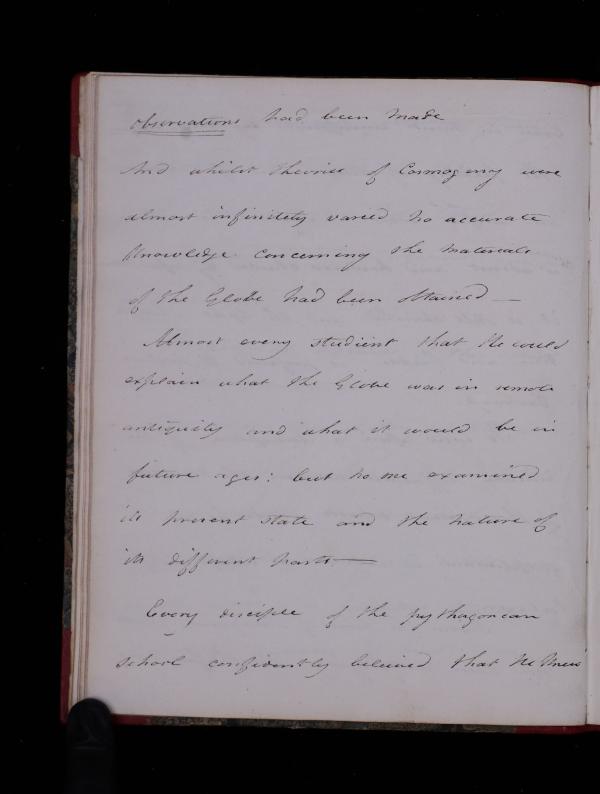 observations had been made
And whilst theories of Cosmogony were
almost infinitely varied no accurate
Knowledge concerning the materials
of the Globe had been attained —
Almost every student that He could
explain what the Globe was in remote
antiquity and what it would be in
future ages: but no one examined
its present state and the nature of
its different parts —
Every disciple of the pythagorean
school confidently beleived that He knew